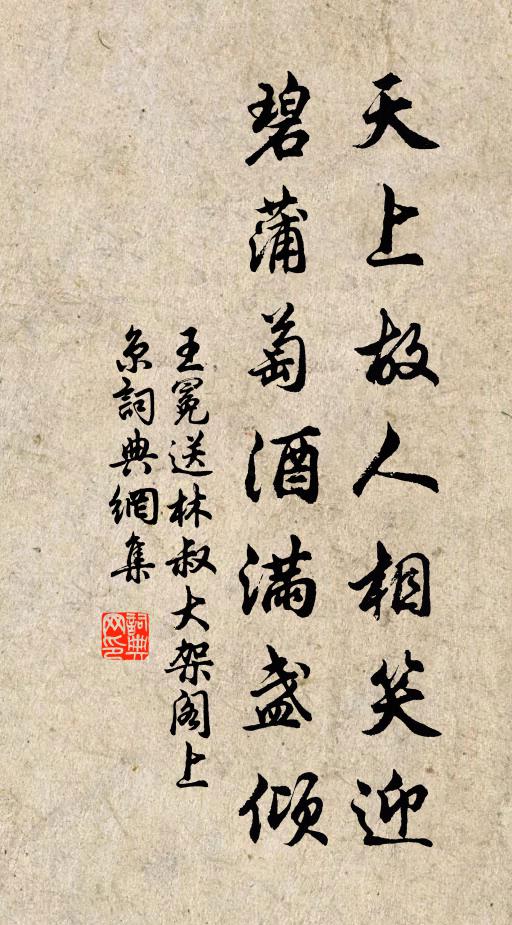 天上故人相笑迎
碧蒲萄酒满盏倾
王冕送林叔大架阁上
京詞典網集
詞典网印